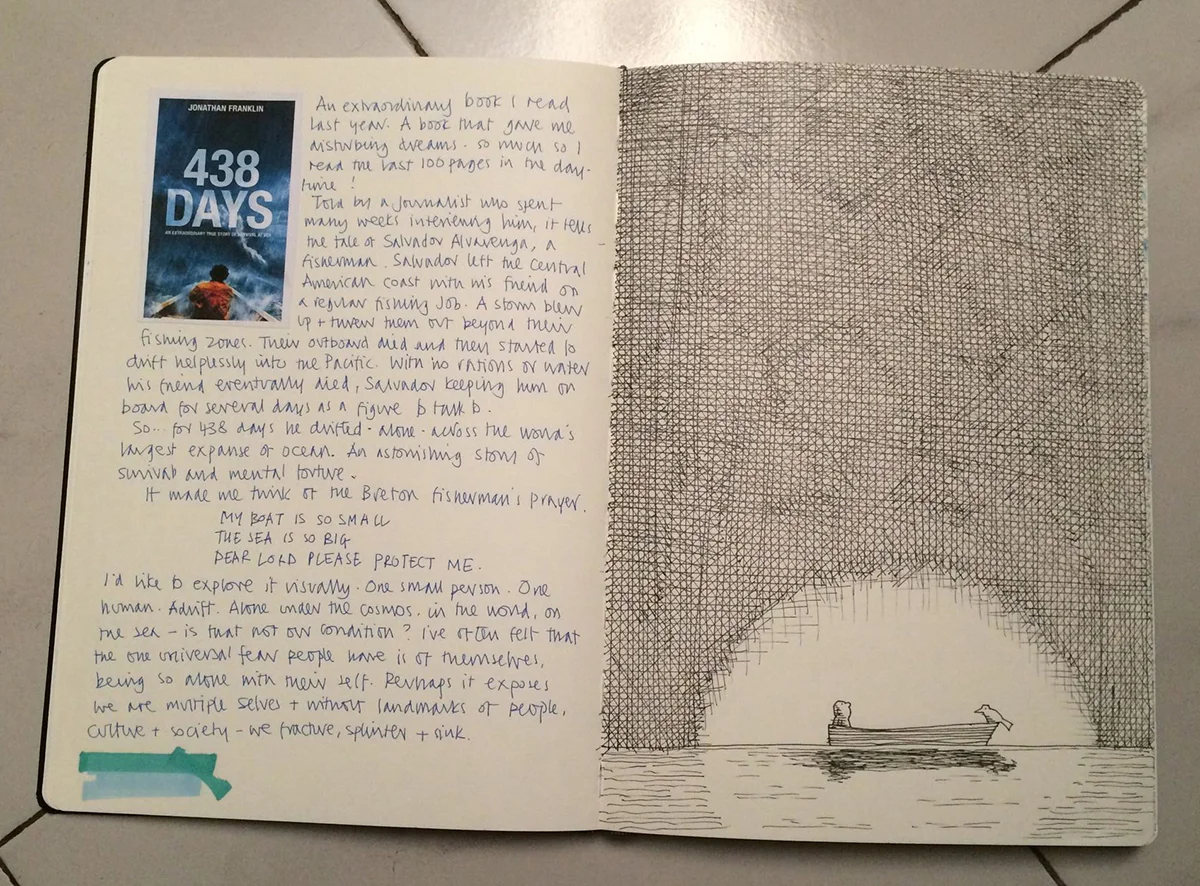 JONATHAN FRANKLIN
438
DAYS
AN EXTRAORDINARY TRUE STORY OF SURVIVAL AT SEA
An extraordinary book I read
last year. A book that gave me
disturbing dreams - so much so I
read the last 100 pages in the day-
time!
Told by a journalist who spent
many weeks interviewing him, it tells
the tale of Salvador Alvarenga, a
fisherman. Salvador left the Central
American coast with his friend on
a regular fishing job. A storm blew
up + threw them out beyond their
fishing zones. Their outboard died and they started to
drift helplessly into the Pacific. With no rations or water
his friend eventually died, Salvador keeping him on
board for several days as a figure to talk to.
So... for 438 days he drifted - alone - across the world's
largest expanse of ocean. An astonishing story of
survival and mental torture.
It made me think of the Breton Fisherman's prayer.
MY BOAT IS SO SMALL
THE SEA IS SO BIG
DEAR LORD PLEASE PROTECT ME.
I'd like to explore it visually. One small person. One
human. Adrift. Alone under the cosmos. in the world, on
the sea - is that not our condition? I've often felt that
the one universal fear people have is of themselves,
being so alone with their self. Perhaps it exposes
we are multiple selves + without landmarks of people,
culture + society - we fracture, splinter + sink.